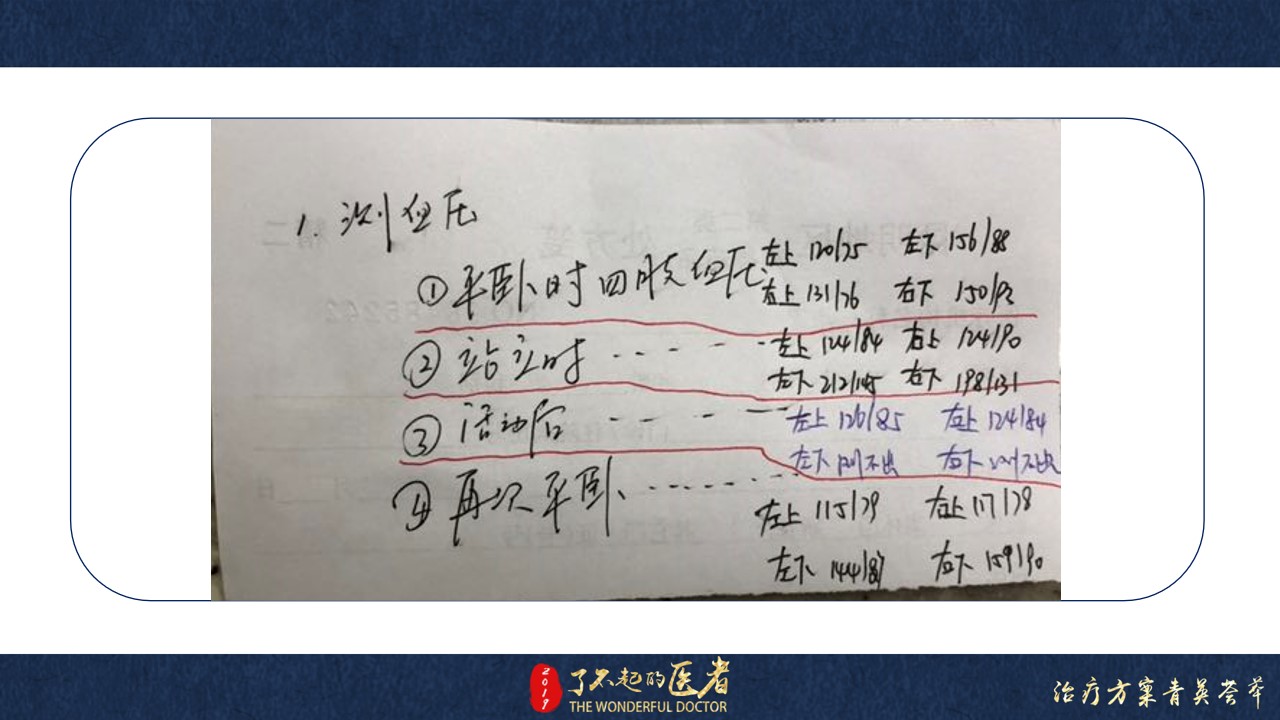 1. 测血压
①平卧时四肢血压 左上 120/75 左下 156/88
右上 131/76 右下 150/92
②站立时 ------ 左上 124/84 右上 124/90
左下 212/145 右下 198/131
③活动后 ------ 左上 126/85 右上 124/84
左下 测不出 右下 测不出
④再次平卧、------ 左上 115/79 右上 117/78
左下 144/87 右下 159/90
2019 了不起的医者
THE WONDERFUL DOCTOR
治疗方案菁英荟萃